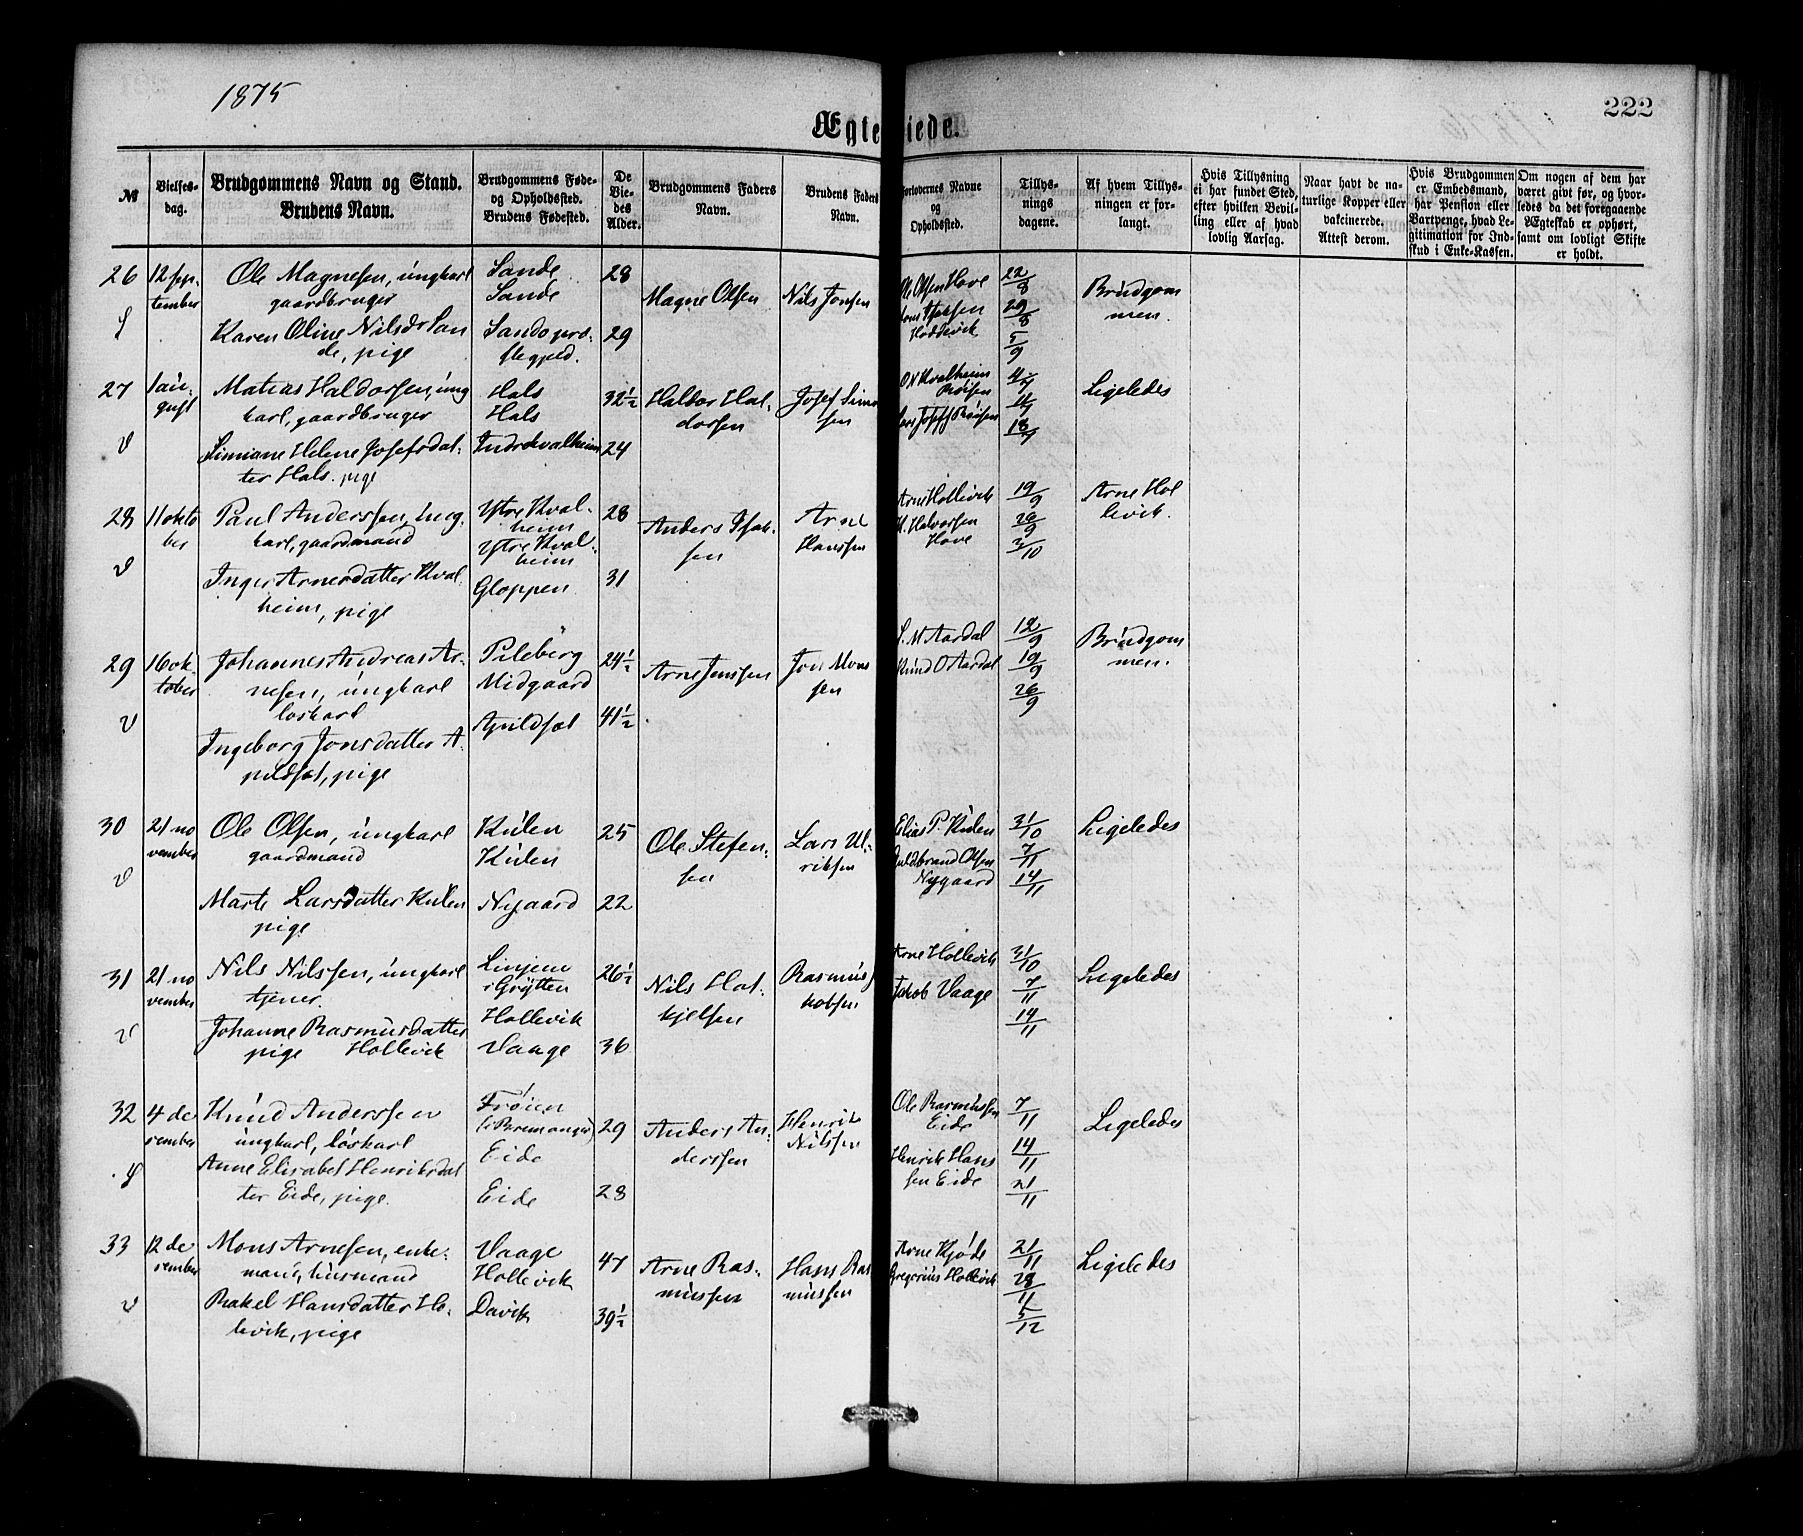 1875
222
Ægteviede.
№
Vielses-
dag.
Brudgommens Navn og Stand.
Brudens Navn.
Brudgommens Føde-
og Opholdssted.
Brudens Fødested.
De
Vie-
des
Alder.
Brudgommens Faders
Navn.
Brudens Faders
Navn.
Forlovernes Navne
og
Opholdssted.
Tillys-
nings
dagene.
Af hvem Tillys-
ningen er for-
langt.
Hvis Tillysning
ei har fundet Sted,
efter hvilken Bevil-
ling eller af hvad
lovlig Aarsag.
Naar havt de na-
turlige Kopper eller
vakcinerede.
Attest derom.
Hvis Brudgommen
er Embedsmand,
har Pension eller
Vartpenge, hvad Le-
gitimation for Ind-
skud i Enke-Kassen.
Om nogen af dem har
været givt før, og hvor-
ledes da det foregaaende
Ægteskab er ophørt,
samt om lovligt Skifte
er holdt.
26
12 sep-
tember
Ole Magnesen, ungkarl
gaardbruger
Karen Oline Nilsdr San
de, pige
Sande
Sande
Sands præ-
stegjeld.
28
29
Magne Olsen
Nils Jonsen
Ole Olsen Hove
Hoddevik
22/8
29/8
5/9
Brudgom
men.
27
1 au-
gust
Matias Haldorsen, ung
karl, gaardbruger
Simiane Helene Josefsdat-
ter Hals. pige
Hals
Hals
Indrekvalheim
32½
24
Haldor Hal-
dorsen
Josef Simo
sen
O N Kvalheim
4/7
11/7
18/7
Ligeledes
28
11 okto
ber
Paul Anderssen, ung-
karl, gaardmand
Inger Arnesdatter Kval-
heim, pige
Ytre Kval-
heim
Ytre Kval-
heim
Gloppen
28
31
Anders Isak-
sen
Arne
Hanssen
Arne Hollevik
H. Halvorsen
Hove
19/9
26/9
3/10
Arne Hol
levik.
29
16 ok-
tober
Johannes Andreas Ar-
nesen, ungkarl
løskarl
Ingeborg Jonsdatter A-
pildsæt, pige
Pileberg
Midgaard
Apildsæt
24½
41½
Arne Jenssen
Jon Mons
sen
S. M Aardal
Knud O Aardal
12/9
19/9
26/9
Brudgom
men.
30
21 no
vember
Ole Olsen, ungkarl
gaardmand
Marte Larsdatter Kulen
pige
Kulen
Kulen
Nygaard
25
22
Ole Stefen-
sen
Lars Ul-
riksen
Elias P. Kulen
Guldbrand Olsen
Nygaard
31/10
7/11
14/11
Ligeledes
31
21 no
vember
Nils Nilssen, ungkarl
tjener
Johanne Rasmusdatter
pige Hollevik
Linjene
i Grytten
Hollevik
Vaage
26½
36
Nils Hal-
kjelsen
Rasmus J
kobsen
Arne Hollevik
Jakob Vaage
31/10
7/11
14/11
Ligeledes
32
4 de
cember
Knud Anderssen
ungkarl, løskarl
Anne Elisabet Henriksdat
ter Eide, pige.
Frøien
(i Bremanger)
Eide
Eide
29
28
Anders An-
derssen
Henrik
Nilssen
Ole Rasmussen
Eide
Henrik Hans
sen Eide
7/11
14/11
21/11
Ligeledes
33
12 de
cember
Mons Arnesen, enke-
mand, husmand
Rakel Hansdatter Ho-
levik, pige
Vaage
Hollevik
Davik
47
39½
Arne Ras-
mussen
Hans Ras
mussen
Arne Kjøde
Gregerius Hollevik
21/11
28/11
5/12
Ligeledes